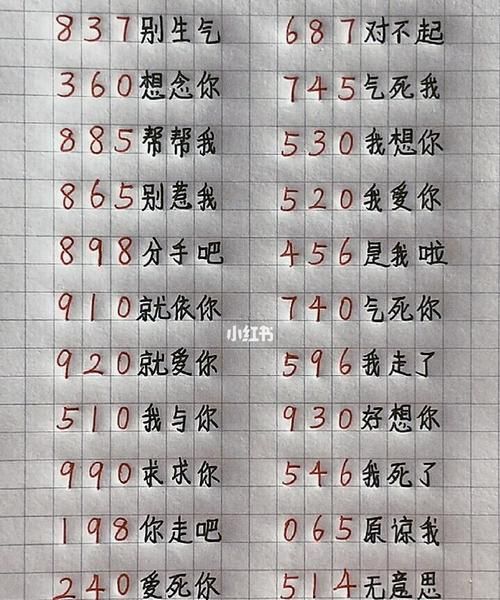 837别生气 687对不起
360想念你 745气死我
885帮帮我 530我想你
865别惹我 520我爱你
898分手吧 456是我啦
910就依你 740气死你
小红书
920就爱你 596我走了
510我与你 930好想你
990求求你 546我死了
198你走吧 065原谅我
240爱死你 514无意思